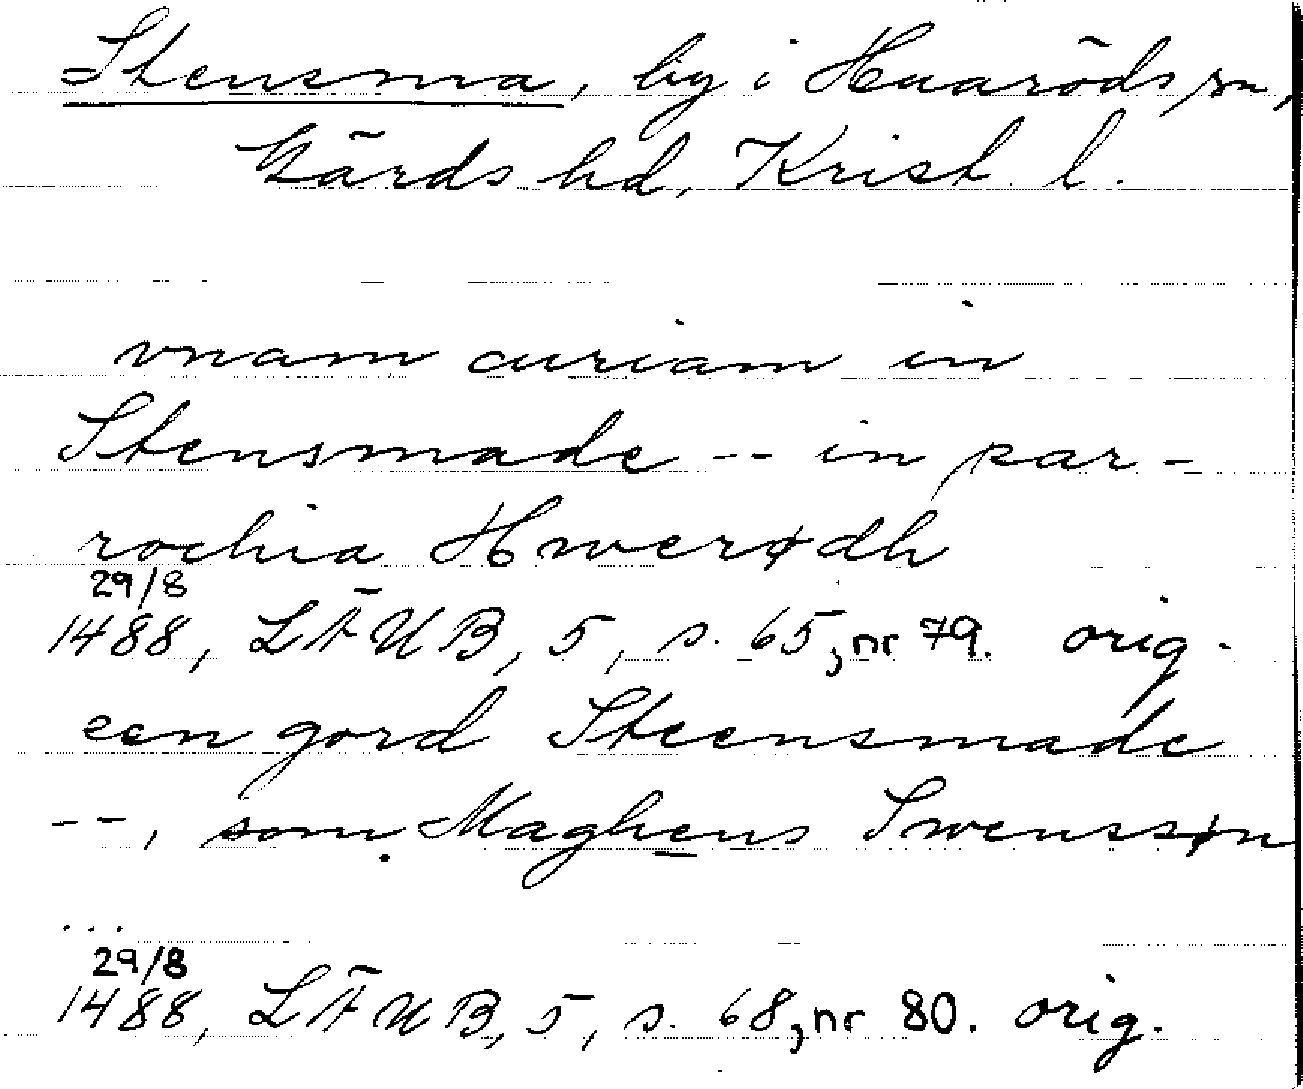 Stensma, by i Huaröds sn,
Gärds hd, Krist. l.
vnam curiam in
Stensmade -- in par-
rochia Hwerødh
29/8
1488, LÄUB, 5, s. 65, nr 79. orig.
een gord Steensmade
--, som Maghens Swenssøn
...
29/8
1488, LÄUB, 5, s. 68, nr 80. orig.